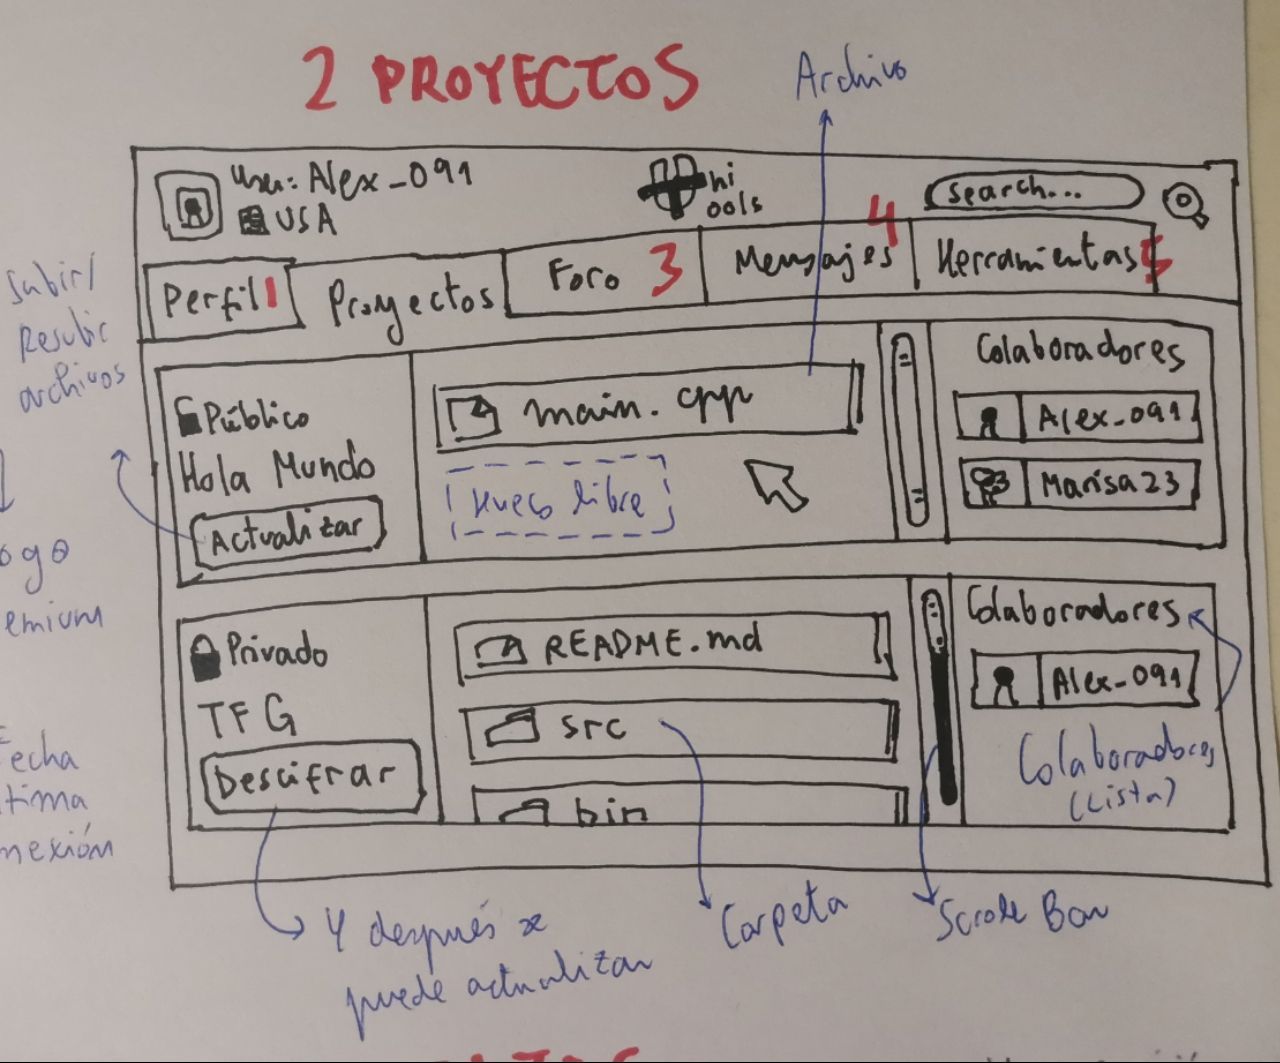 2 PROYECTOS
Archivo
User: Alex_091
USA
hi
ools
search...
Perfil 1
Proyectos
Foro 3
Mensajes 4
Herramientas 5
Subir/
Resubir
archivos
Público
Hola Mundo
Actualizar
main.cpp
Hueco libre
Colaboradores
Alex_091
Marisa23
ogo
emium
Privado
TFG
Descifrar
README.md
src
bin
Colaboradores
Alex_091
Colaboradores
(Lista)
Fecha
tima
nexión
Y después se
puede actualizar
Carpeta
Scrole Bar